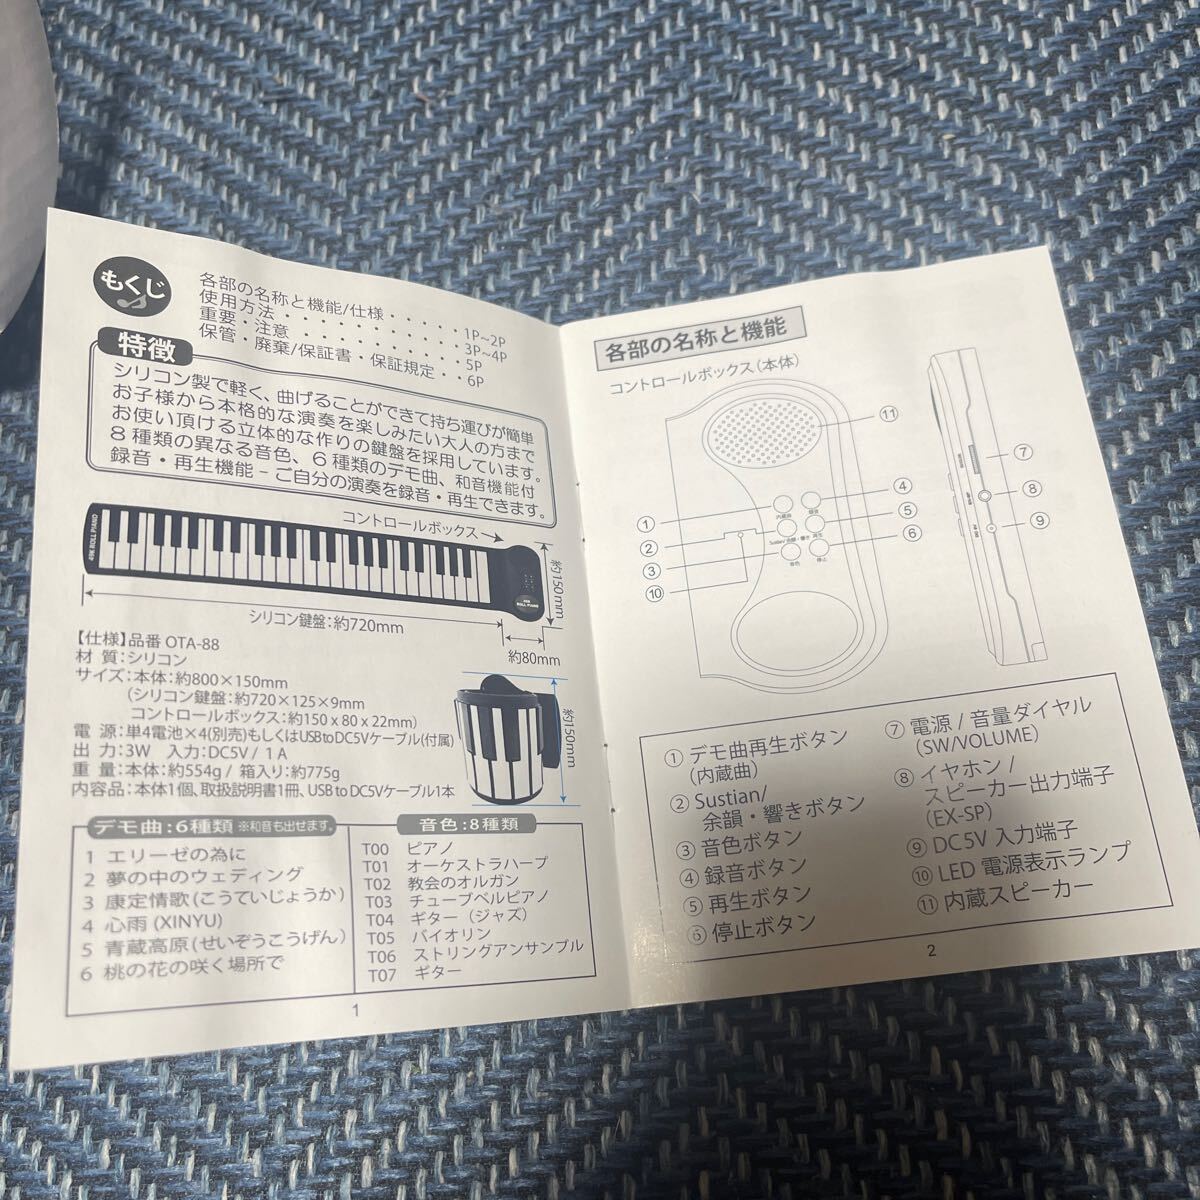 もくじ
各部の名称と機能/仕様・・・・・1P~2P
使用方法・・・・・・・・・・・3P~4P
重要・注意・・・・・・・・・・5P
保管・廃棄/保証書・保証規定・・6P
特徴
シリコン製で軽く、曲げることができて持ち運びが簡単
お子様から本格的な演奏を楽しみたい大人の方まで
お使い頂ける立体的な作りの鍵盤を採用しています。
8種類の異なる音色、6種類のデモ曲、和音機能付
録音・再生機能 – ご自分の演奏を録音・再生できます。
コントロールボックス
49K ROLL PIANO
49K
ROLL PIANO
約150mm
シリコン鍵盤:約720mm
約80mm
【仕様】品番 OTA-88
材 質:シリコン
サイズ:本体:約800×150mm
(シリコン鍵盤:約720×125×9mm
コントロールボックス:約150 x 80 x 22mm)
電 源:単4電池×4(別売)もしくはUSB to DC5Vケーブル(付属)
出 力:3W 入力:DC5V / 1 A
重 量:本体:約554g / 箱入り:約775g
内容品:本体1個、取扱説明書1冊、USB to DC5Vケーブル1本
約150mm
デモ曲:6種類 ※和音も出せます。
1 エリーゼの為に
2 夢の中のウェディング
3 康定情歌(こうていじょうか)
4 心雨 (XINYU)
5 青蔵高原(せいぞうこうげん)
6 桃の花の咲く場所で
音色:8種類
T00 ピアノ
T01 オーケストラハープ
T02 教会のオルガン
T03 チューブベルピアノ
T04 ギター(ジャズ)
T05 バイオリン
T06 ストリングアンサンブル
T07 ギター
1
各部の名称と機能
コントロールボックス(本体)
⑪
④
⑤
⑥
①
②
③
⑩
内蔵曲
録音
Sustian/ 余韻・響き
再生
音色
停止
⑦
⑧
⑨
① デモ曲再生ボタン
(内蔵曲)
② Sustian/
余韻・響きボタン
③ 音色ボタン
④ 録音ボタン
⑤ 再生ボタン
⑥ 停止ボタン
⑦ 電源 / 音量ダイヤル
(SW/VOLUME)
⑧ イヤホン /
スピーカー出力端子
(EX-SP)
⑨ DC5V 入力端子
⑩ LED 電源表示ランプ
⑪ 内蔵スピーカー
2